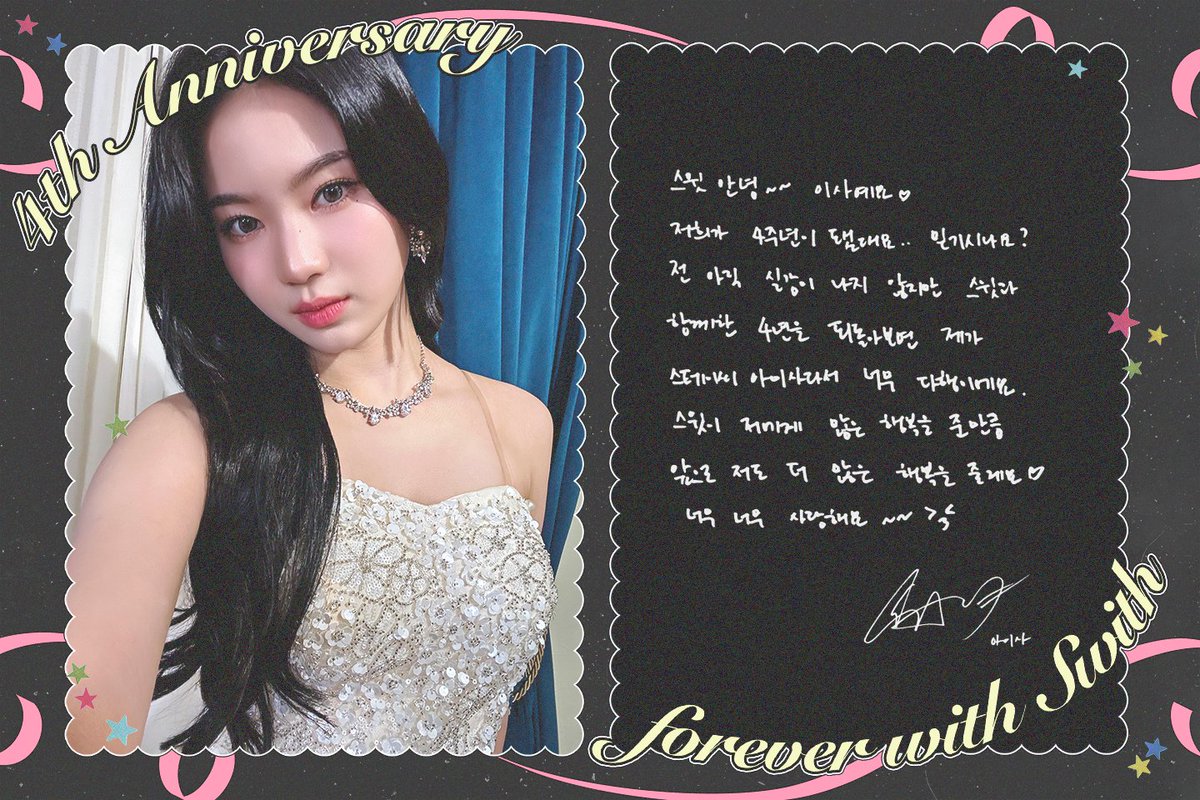 4th Anniversary
스윗 안녕~~ 이사예요♡
저희가 4주년이 됐대요.. 믿기시나요?
전 아직 실감이 나지 않지만 스윗과
함께한 4년을 되돌아보면 제가
스테이씨 아이사라서 너무 다행이에요.
스윗이 저에게 많은 행복을 준만큼
앞으로 저도 더 많은 행복을 줄게요♡
너무 너무 사랑해요 ~~
아이사
forever with Swith